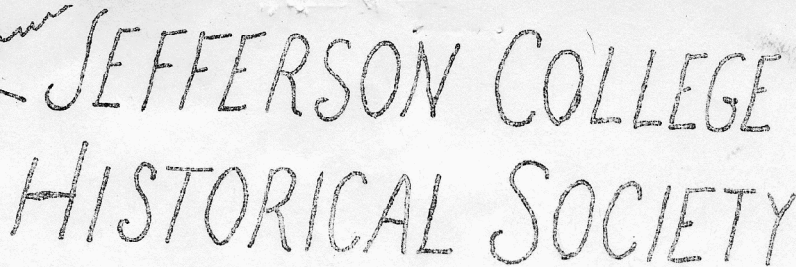 JEFFERSON COLLEGE
HISTORICAL SOCIETY